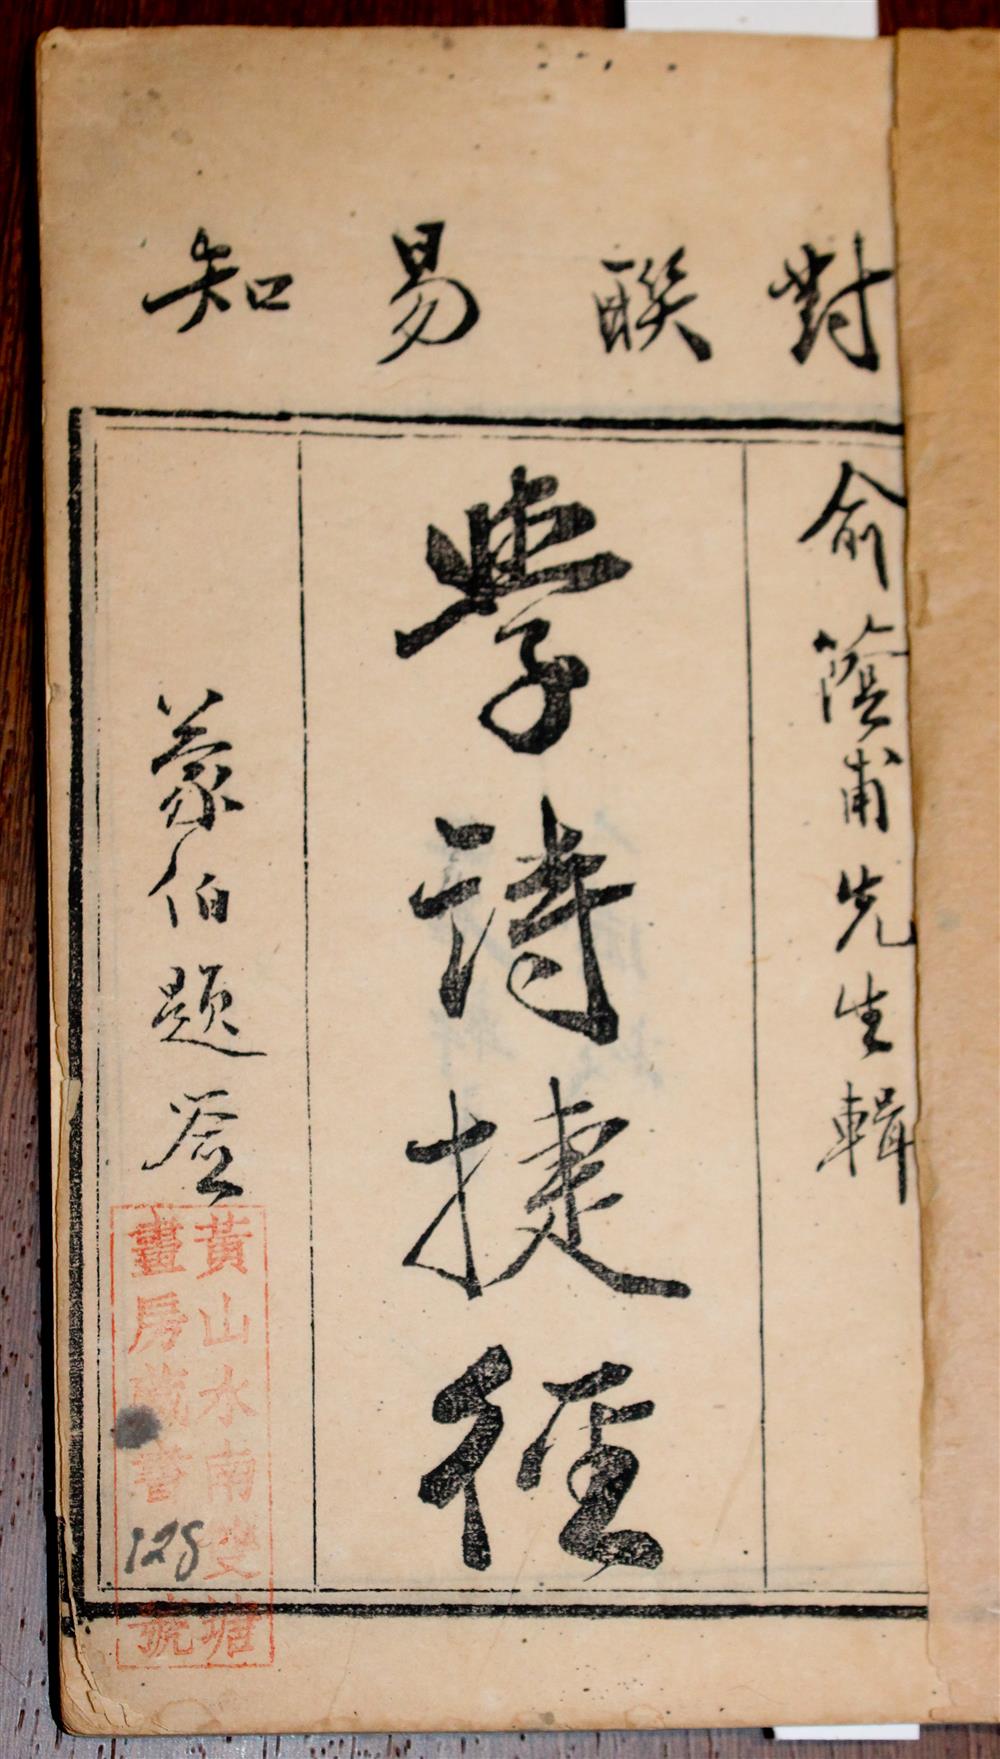 對聯易知
俞蔭甫先生輯
學詩捷徑
篆伯題签
黃山水南雙塘
畫房藏書 號
128